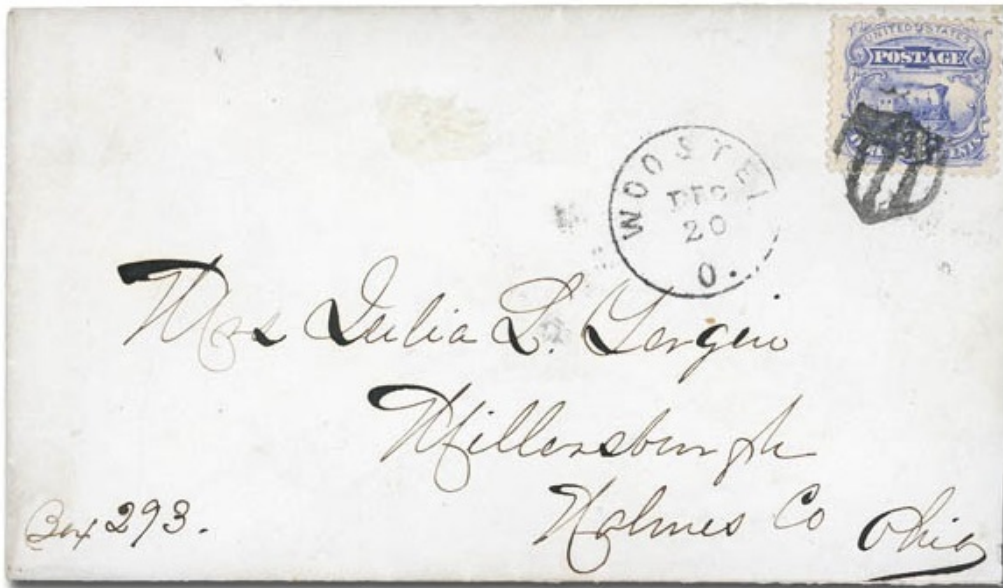 UNITED STATES
POSTAGE
WOOSTE
DEC
20
O.
Mrs Julia L. Yergin
Millersburgh
Holmes Co Ohio
Box 293.